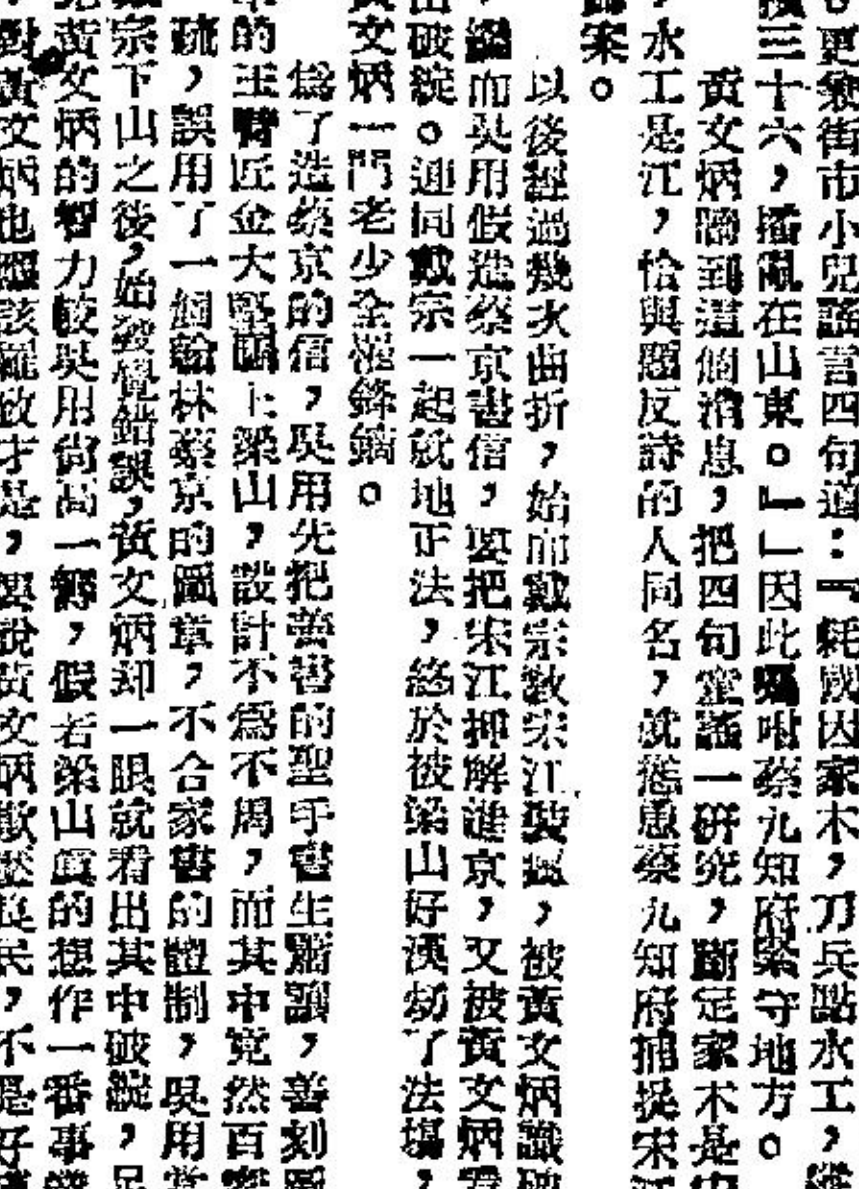 。更兼街市小兒謠言四句道：『耗國因家木，刀兵點水工，縱
三十六，播亂在山東。』」因此囑咐蔡九知府緊守地方。
黃文炳聽到這個消息，把四句童謠一研究，斷定家木是
，水工是江，恰與題反詩的人同名，就慫恿蔡九知府捕捉宋江
案。
以後經過幾次曲折，始而戴宗教宋江裝瘋，被黃文炳識破
，繼而吳用假造蔡京書信，要把宋江押解進京，又被黃文炳看
出破綻。連同戴宗一起就地正法，終於被梁山好漢劫了法場，
黃文炳一門老少全罹鋒鏑。
爲了造蔡京的信，吳用先把善書的聖手書生蕭讓，善刻圖
章的玉臂匠金大堅賺上梁山，設計不爲不周，而其中竟然百密
疏，誤用了一個翰林蔡京的圖章，不合家書的體制，吳用當
戴宗下山之後，始發覺錯誤，黃文炳却一眼就看出其中破綻，足
見黃文炳的智力較吳用尚高一籌，假若梁山眞的想作一番事業
，對黃文炳也應該羅致才是，要說黃文炳欺壓良民，不是好漢